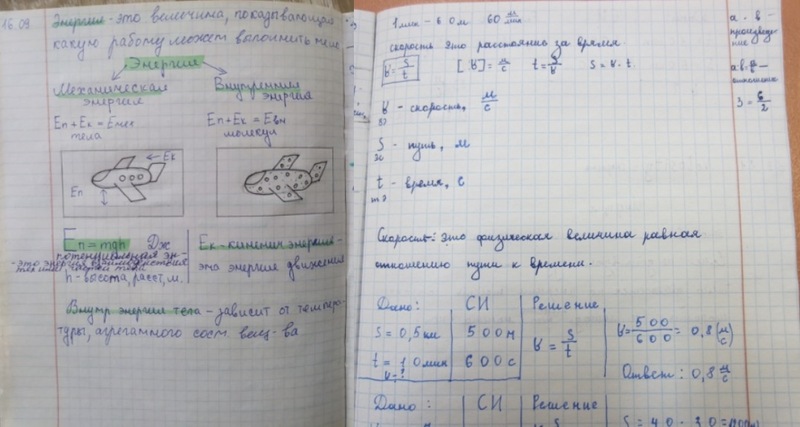 16.09
Энергия - это величина, показывающая
какую работу может выполнить тело.
Энергия
Механическая
энергия
Внутренняя
энергия
Eп+Eк = Eмех
тела
Eп+Eк = Eвн
молекул
Eк
Eп
Eп = mgh Дж
потенциальная эн-
- это энергия взаимодействия
тел или частей тела
h - высота, расст, м.
Eк - кинетич энергия -
эта энергия движения
Внутр энергия тела - зависит от темпера-
туры, агрегатного сост вещ-ва
1 мин - 60 м 60 м/мин
скорость это расстояние за время.
υ = S/t [υ] = м/с t = S/υ S = υ · t.
υ - скорость, м/с
S - путь, м
эс
t - время, с
тэ
Скорость: это физическая величина равная
отношению пути к времени.
Дано: СИ Решение
S = 0,5 км 500 м υ = S/t υ = 500/600 = 0,8 (м/с)
t = 10 мин 600 с
υ - ?
Ответ: 0,8 м/с
Дано: СИ Решение
S = 40 · 30 =
а · в -
произведе-
ние
3 = 6/2